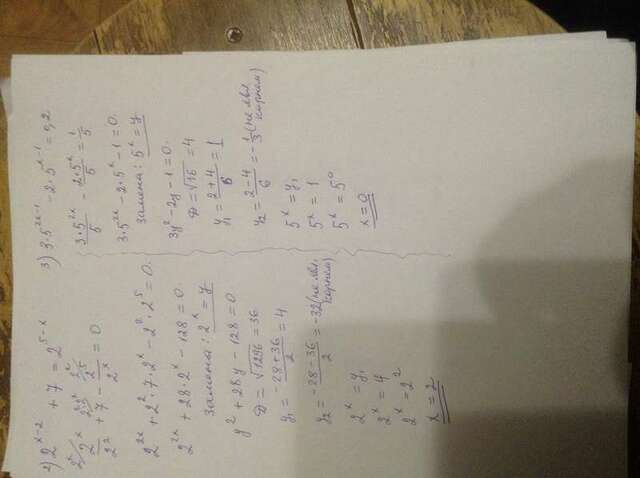 2) 2^{x-2} + 7 = 2^{5-x}
2^x/ 2^2·2^x/ 2^2/
2^x/2^2 + 7 - 2^5/2^x = 0
2^{2x} + 2^2·7·2^x - 2^2·2^5 = 0.
2^{2x} + 28·2^x - 128 = 0
Замена: 2^x = y
y^2 + 28y - 128 = 0
D = √1296 = 36
y_1 = (-28+36)/2 = 4
y_2 = (-28-36)/2 = -32 (не явл.
корнем)
2^x = y_1
2^x = 4
2^x = 2^2
x = 2
3) 3·5^{2x-1} - 2·5^{x-1} = 0,2
3·5^{2x}/5 - 2·5^x/5 = 1/5
3·5^{2x} - 2·5^x - 1 = 0.
Замена: 5^x = y
3y^2 - 2y - 1 = 0.
D = √16 = 4
y_1 = (2+4)/6 = 1
y_2 = (2-4)/6 = -1/3 (не явл.
корнем)
5^x = y_1
5^x = 1
5^x = 5^0
x = 0